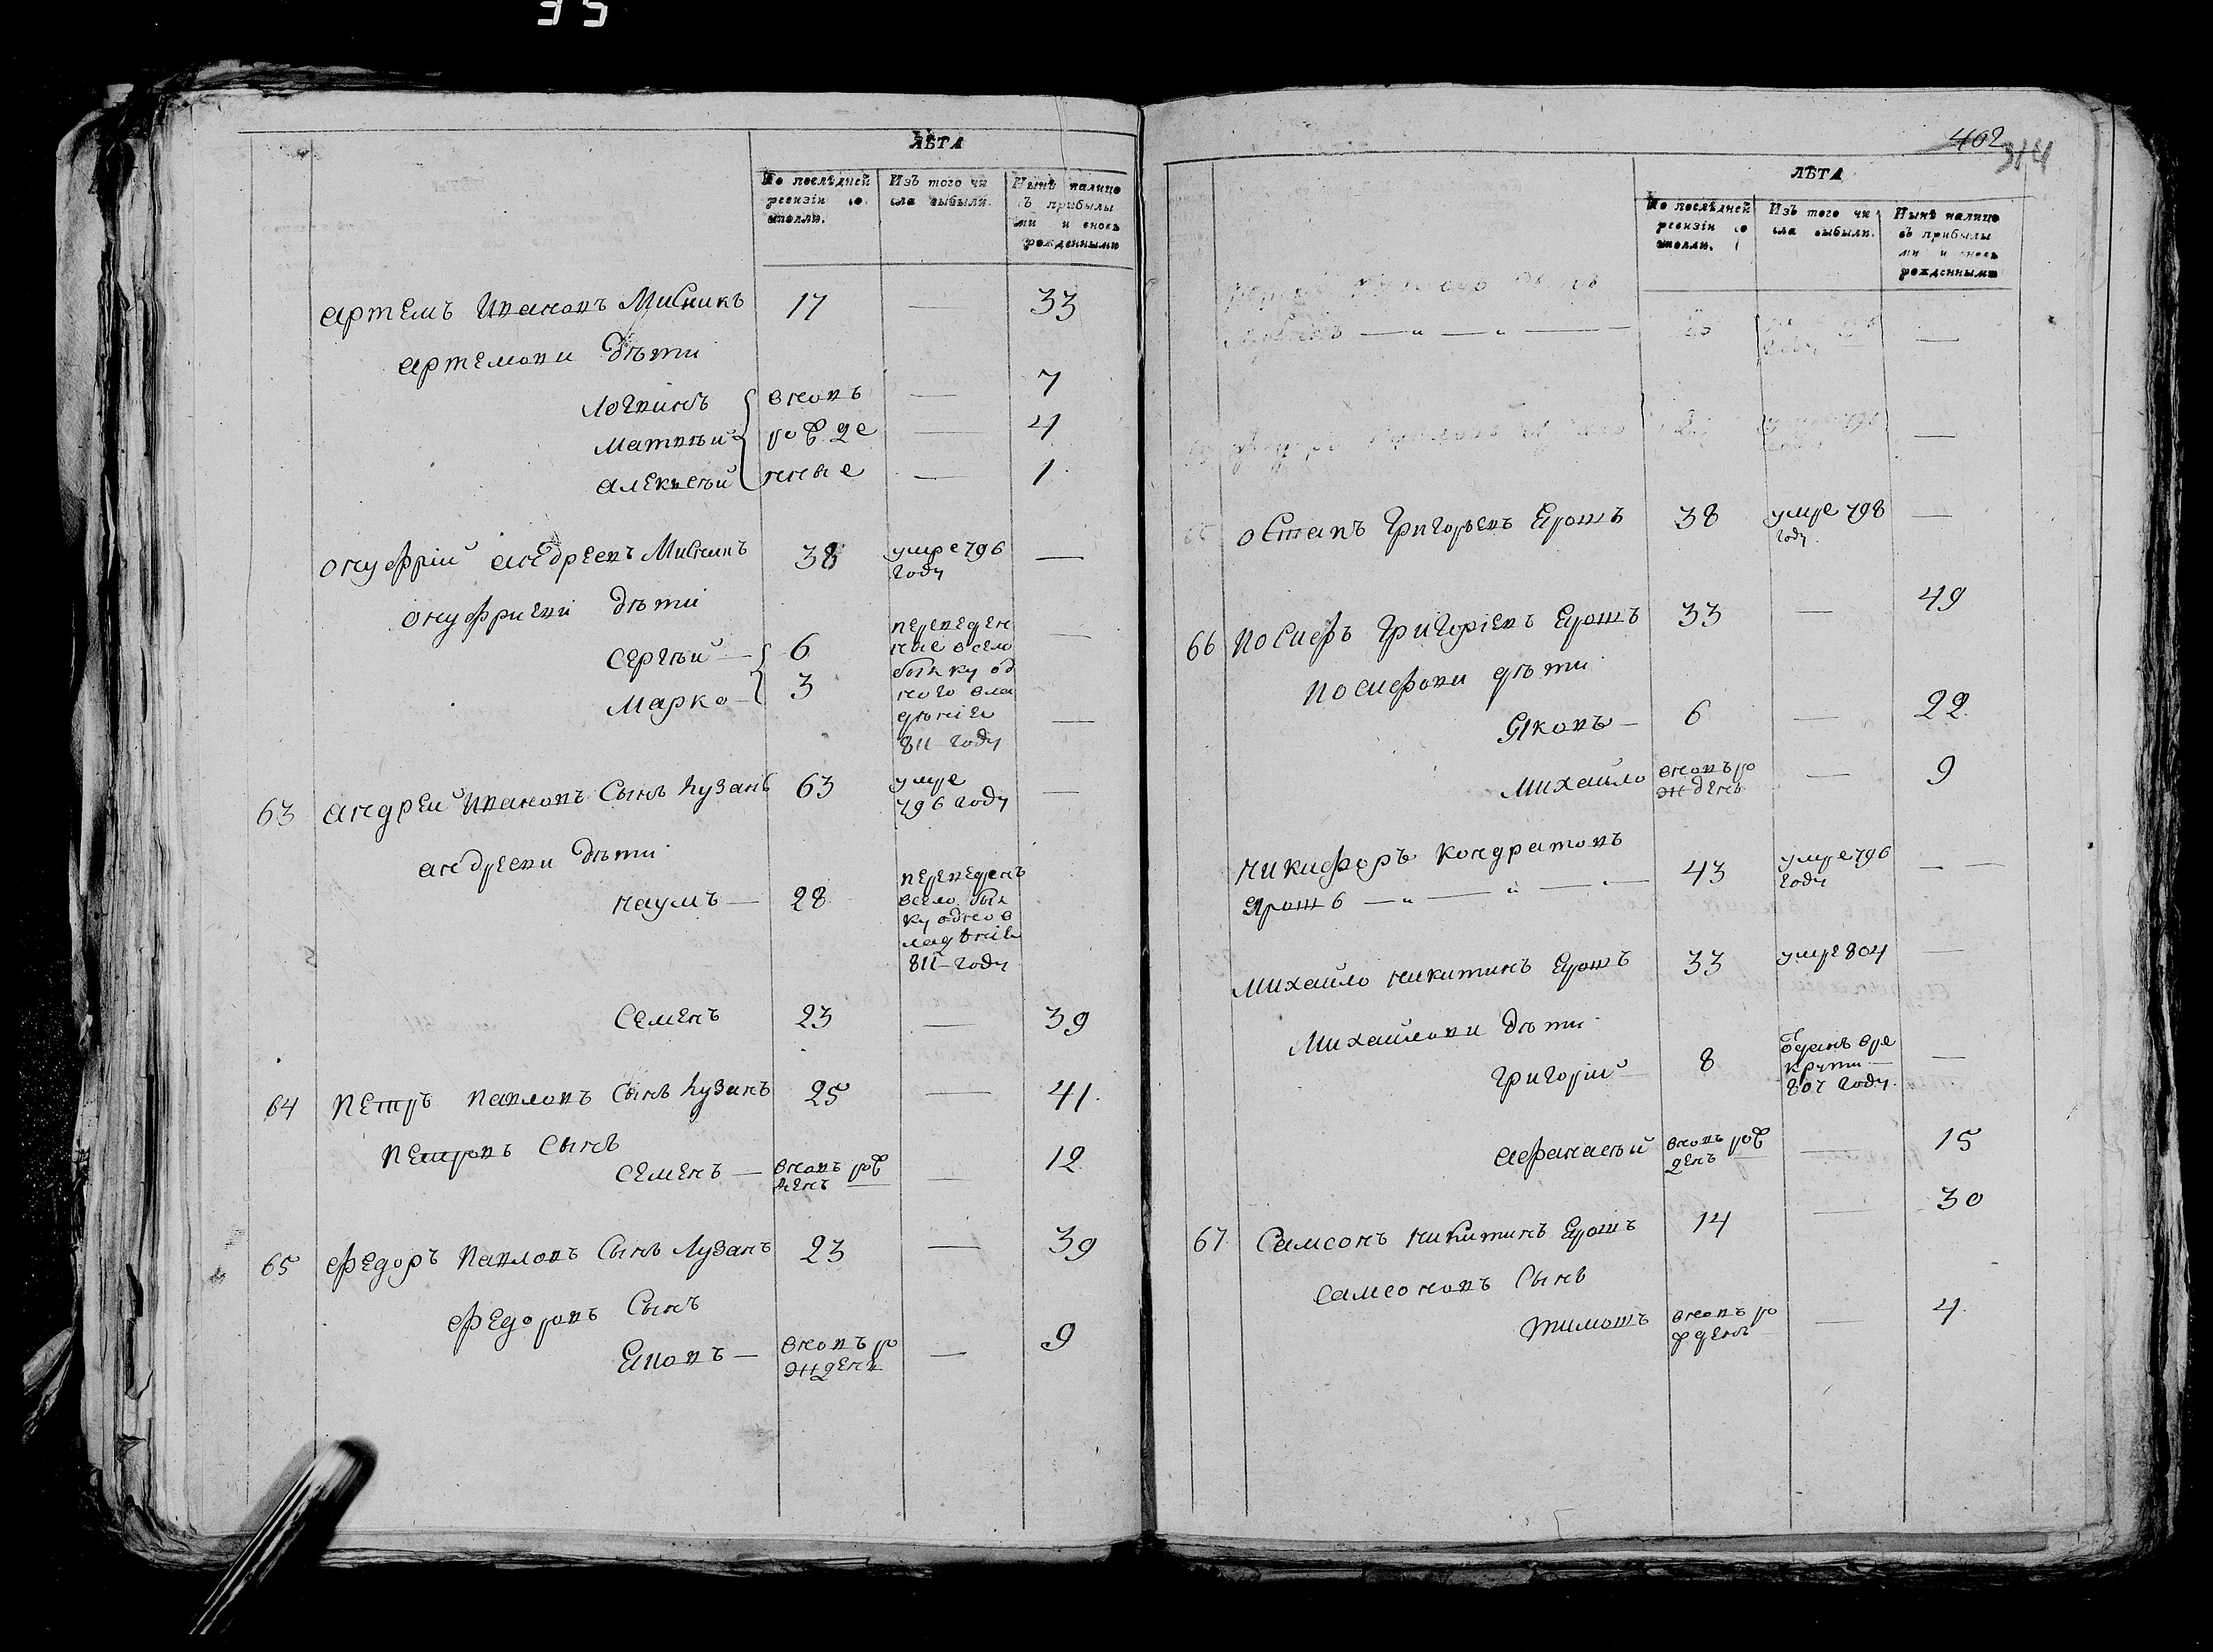 35
ЛѢТА
По послѣдней ревизіи со стояли.
Изъ того чи сла выбыли.
Нынѣ налицо съ прибылы ми и вновь рожденными
Артемъ Ивановъ Мисникъ 17 — 33
Артемови дѣти
Логвинъ вновь — 7
Матвѣй рожде — 4
Алексѣй нные — 1
Онуфрій Андреевъ Мисникъ 38 умре 796 году —
Онуфриеви дѣти
Сергѣй — 6 —
Марко — 3 —
переведен
ные в сло
боду
од
ного вла
дѣнія
811 году
63 Андрей Ивановъ Сынъ Лузанъ 63 умре 796 году —
Андрееви дѣти
Наумъ — 28
переведенъ
811 году
Семенъ 23 — 39
64 Петръ Павловъ Сынъ Лузанъ 25 — 41
Петровъ Сынъ
Семенъ — вновь рож денъ — 12
65 Федоръ Павловъ Сынъ Лузанъ 23 — 39
Федоровъ Сынъ
вновь ро жденъ — 9
402
314
ЛѢТА
По послѣдней ревизіи со стояли.
Изъ того чи сла выбыли.
Нынѣ налицо съ прибылы ми и вновь рожденными
Остапъ Григорьевъ Ярошъ 38 умре 798 году —
66 Иосифъ Григоріевъ Ярошъ 33 — 49
Иосифови дѣти
Яковъ — 6 — 22
Михайло вновь ро жденъ — 9
Никифоръ Кондратовъ
Ярошъ — 43 умре 796 году —
Михайло Никитинъ Ярошъ 33 умре 804 —
Михайлови дѣти
Григорій — 8 отданъ в ре крути году —
Афанасій вновь рож денъ — 15
67 Самсонъ Никитинъ Ярошъ 14 — 30
Самсоновъ Сынъ
Тимошъ вновь ро жденъ — 4